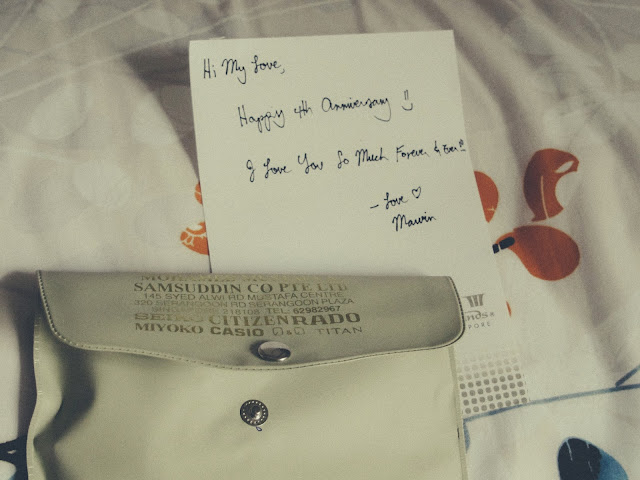 Hi My Love,
Happy 4th Anniversary !!
I Love You So Much Forever & Ever!!
- Love ♡
Mawin
SAMSUDDIN CO PTE LTD
145 SYED ALWI RD MUSTAFA CENTRE
320 SERANGOON RD SERANGOON PLAZA
SINGAPORE 218108 TEL: 62982967
SEIKO CITIZEN RADO
MIYOKO CASIO Q&Q TITAN